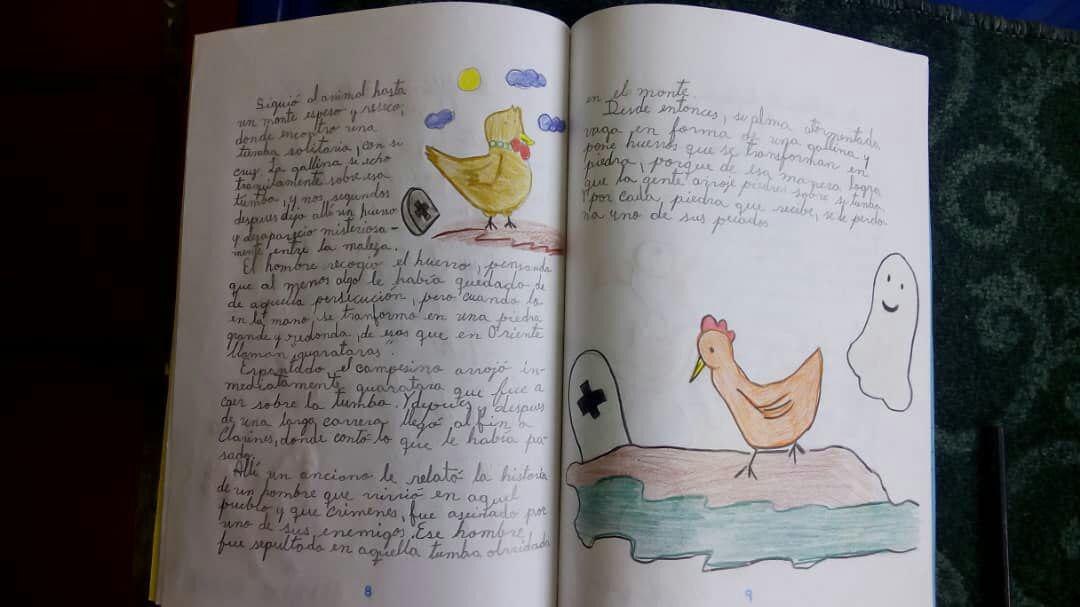 Siguió al animal hasta
un monte espeso y reseco,
donde encontro una
tumba solitaria, con su
cruz. La gallina se echo
tranquilamente sobre esa
tumba, y nos segundos
despues dejo allí un huevo
y desaparecio misteriosa-
mente entre la maleza.
El hombre recogio el huevo, pensando
que al menos algo le había quedado de
de aquella persecución, pero cuando lo
en la mano, se tranformo en una piedra
grande y redonda, de esas que en Oriente
llaman "guarataras".
Espantado el campesino arrojó in-
mediatamente guaratara que fue a
caer sobre la tumba. Y despues
de una larga carrera llegó al fin a
Clarines, donde contó lo que le había pa-
sado.
Allí un anciano le relató la historia
de un hombre que vivvió en aquel
pueblo y que crimenes, fue asesinado por
uno de sus enemigos. Ese hombre
fue sepultado en aquella tumba olvidada
8
en el monte.
Desde entonces, su alma atormentada
vaga en forma de una gallina y
pone huevos que se transforman en
piedra, porque de esa manera logra
que la gente arroje piedras sobre su tumba.
Y por cada piedra que recibe, se le perdo-
na uno de sus pecados.
9